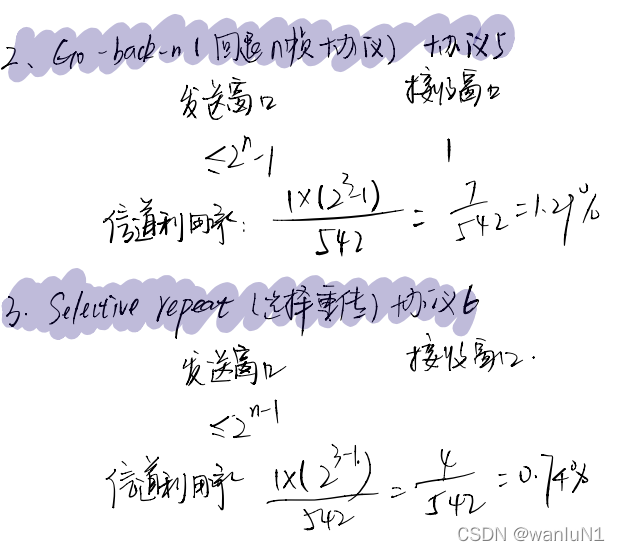 2、Go-back-n(回退n帧协议) 协议5
发送窗口 接收窗口
≤2^n-1 1
信道利用率: 1×(2^3-1)/542 = 7/542 = 1.29%
3. Selective repeat (选择重传) 协议6
发送窗口 接收窗口.
≤2^{n-1}
信道利用率 1×(2^{3-1})/542 = 4/542 = 0.74%
CSDN @wanluN1